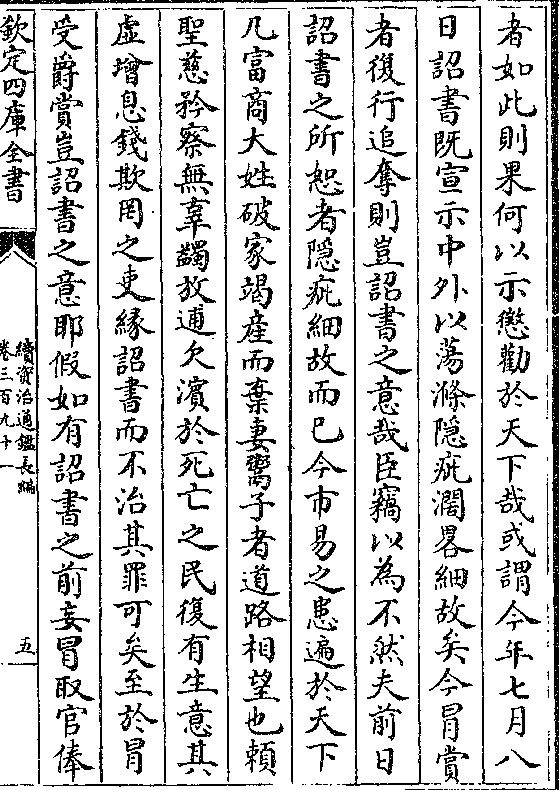 者如此則果何以示懲勸於天下哉或謂今年七月八
日詔書既宣示中外以蕩滌隱疵濶畧細故矣今冐賞
者復行追奪則豈詔書之意哉臣竊以為不然夫前日
詔書之所恕者隱疵細故而已今市易之患遍於天下
凡富商大姓破家竭産而棄妻鬻子者道路相望也賴
聖慈矜察無辜蠲放逋欠濱於死亡之民復有生意其
虛增息錢欺罔之吏縁詔書而不治其罪可矣至於冐
受爵賞豈詔書之意耶假如有詔書之前妄冐取官俸
欽定四庫全書
續資治通鑑長編
卷三百九十一
五